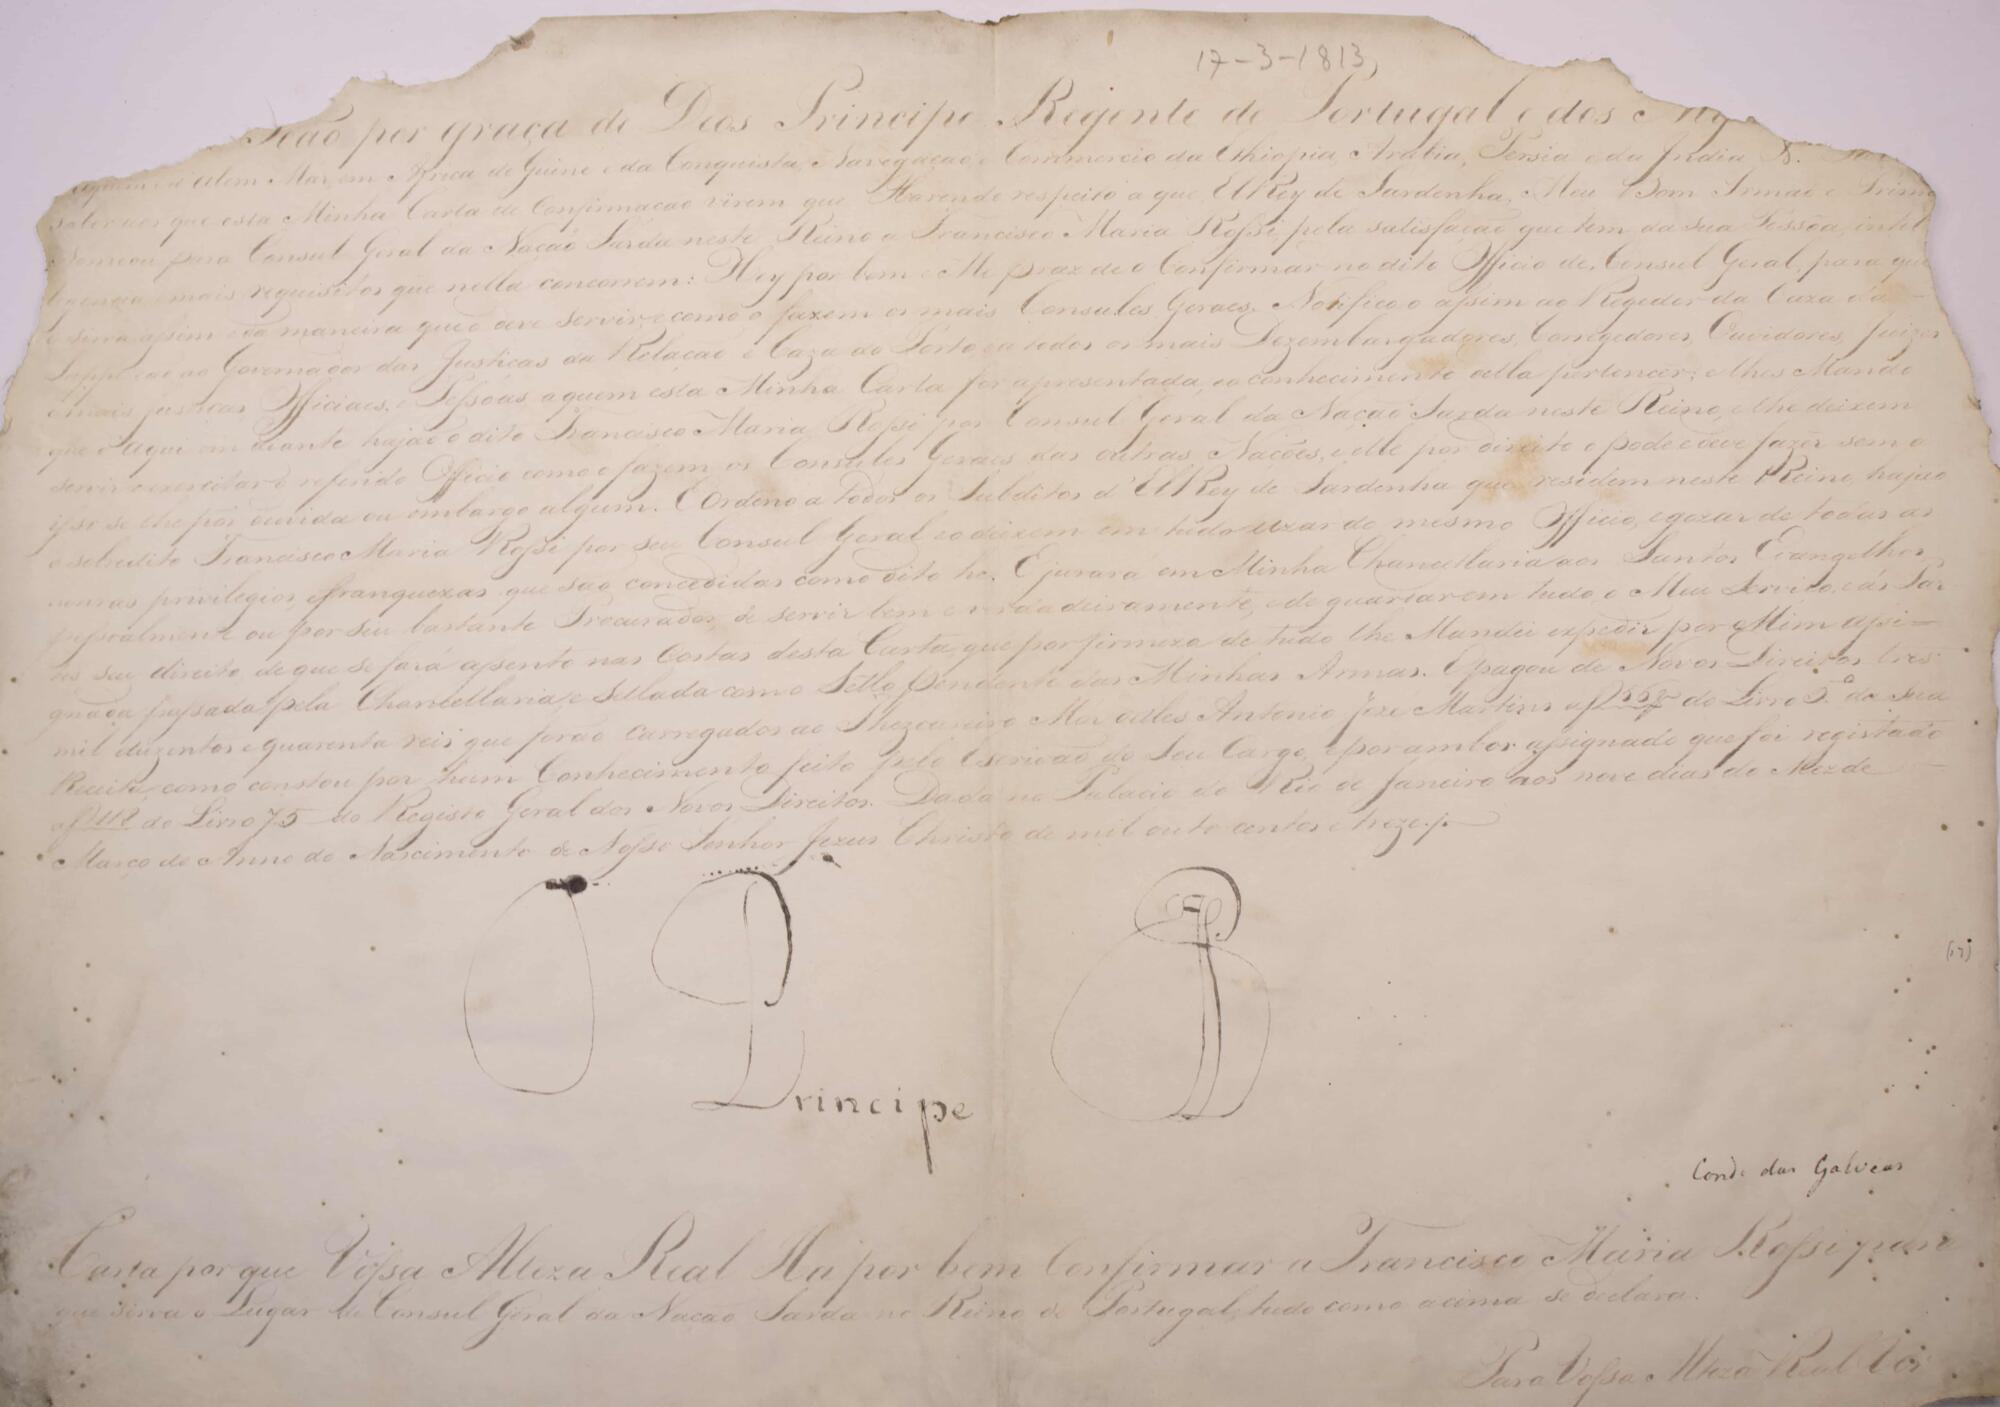 17-3-1813
João por graça de Deos Principe Regente de Portugal e dos
d'alem Mar, em Africa de Guiné e da Conquista, Navegação e Commercio da Ethiopia, Arabia, Persia e da India &.
saber aos que esta Minha Carta de Confirmação virem que Havendo respeito a que ElRey de Sardenha, Meu Bom Irmaõ e Primo
Nomeou para Consul Geral da Nação Sarda neste Reino a Francisco Maria Roſsi, pela satisfação que tem da sua Peſsôa, intel
ligencia e mais requisitos que nella concorrem: Hey por bem e Me praz de o Confirmar no dito Officio de Consul Geral, para que
o sirva aſsim e da maneira que o deve servir, e como o fazem os mais Consules Geraes. Notifico o aſsim ao Regedor da Caza da
Supplicação Governador das Justiças da Relação e Caza do Porto, e a todos os mais Dezembargadores, Corregedores, Ouvidores, Juizes
e mais justiças Officiaes, e Peſsôas, a quem esta Minha Carta for apresentada, e o conhecimento della pertencer; e lhes Mando
que d'aqui em diante hajaõ o dito Francisco Maria Roſsi por Consul Geral da Naçaõ Sarda neste Reino, e lhe deixem
servir e exercitar o referido Officio como o fazem os Consules Geraes das outras Nações, e elle por direito o pode e deve fazer sem o
iſso se lhe pôr duvida ou embargo algum. E Ordeno a todos os Subditos d'ElRey de Sardenha que residem neste Reino, hajaõ
o sobredito Francisco Maria Roſsi por seu Consul Geral e o deixem em tudo uzar do mesmo Officio, e gozar de todas as
honras privilegios, e franquezas que saõ concedidas como dito he. E jurará em Minha Chancellaria aos Santos Evangelhos
peſsoalmente ou por seu bastante Procurador, de servir bem e verdadeiramente, e de guardar em tudo o Meu Serviço, e ás Par
tes seu direito, de que se fará aſsento nas Costas desta Carta, que por firmeza de tudo lhe Mandei expedir por Mim aſsi-
gnada, paſsada pela Chancellaria, e Sellada com o Sello pendente das Minhas Armas. E pagou de Novos Direitos tres
mil duzentos e quarenta reis que foraõ carregados ao Thezoureiro Mór delles Antonio Jozé Martins a f do Livro 5.º da Sua
Receita, como constou por hum Conhecimento feito pelo Escrivaõ do Seu Cargo, e por ambos aſsignado que foi registado
a f 118 do Livro 75 do Registo Geral dos Novos Direitos. Dada no Palacio do Rio de Janeiro aos nove dias do Mez de
Março do Anno do Nascimento de Noſso Senhor Jezus Christo de mil outo centos e treze.
O Principe
Conde das Galveas
Carta por que Voſsa Alteza Real Ha por bem Confirmar a Francisco Maria Roſsi para
que sirva o Lugar de Consul Geral da Nação Sarda no Reino de Portugal, tudo como acima se declara.
Para Voſsa Alteza Real Ver